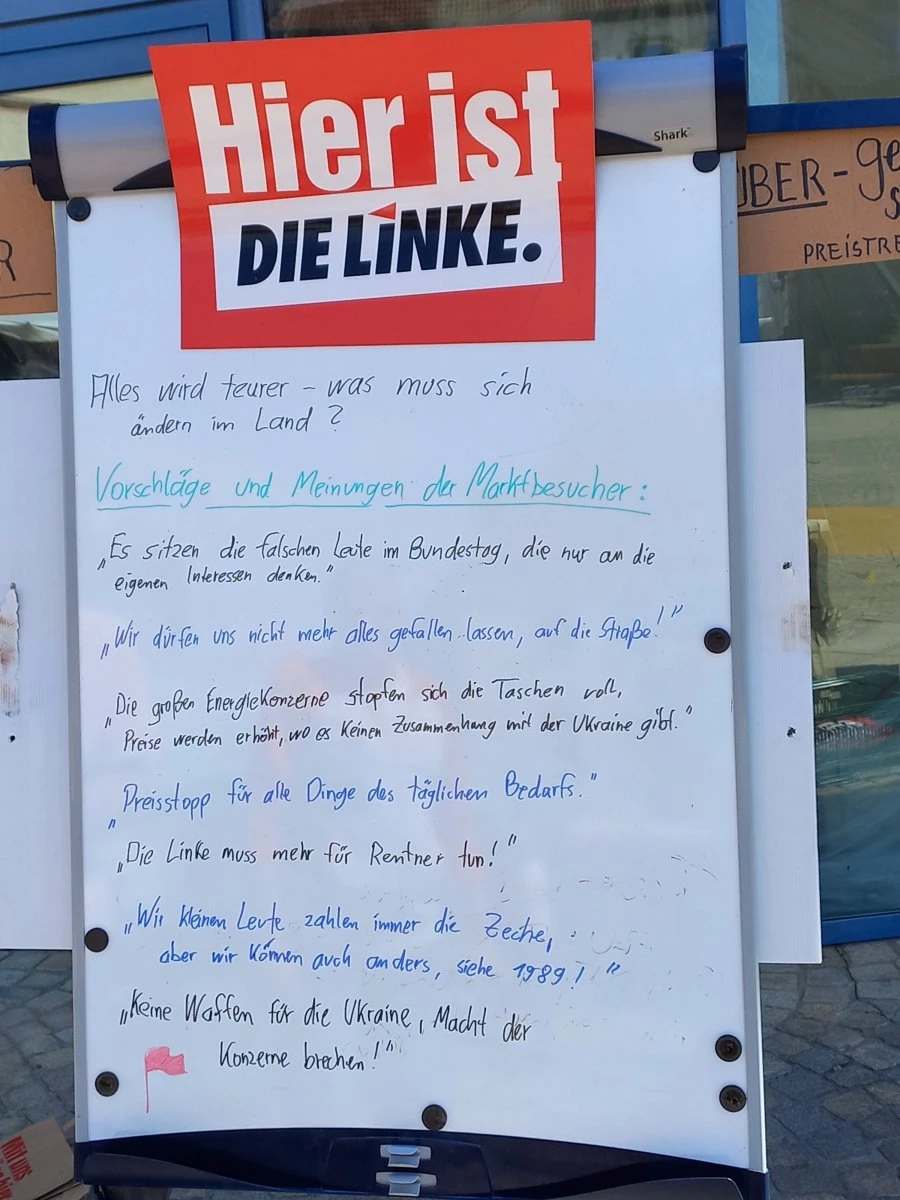 Hier ist
DIE LINKE.
Shark
ÜBER-
PREISTRE
R
Alles wird teurer – was muss sich
ändern im Land?
Vorschläge und Meinungen der Marktbesucher:
„Es sitzen die falschen Leute im Bundestag, die nur an die
eigenen Interessen denken."
„Wir dürfen uns nicht mehr alles gefallen lassen, auf die Straße!"
„Die großen Energiekonzerne stopfen sich die Taschen voll,
Preise werden erhöht, wo es keinen Zusammenhang mit der Ukraine gibt."
„Preisstopp für alle Dinge des täglichen Bedarfs."
„Die Linke muss mehr für Rentner tun!"
„Wir kleinen Leute zahlen immer die Zeche,
aber wir können auch anders, siehe 1989!"
„Keine Waffen für die Ukraine, Macht der
Konzerne brechen!"